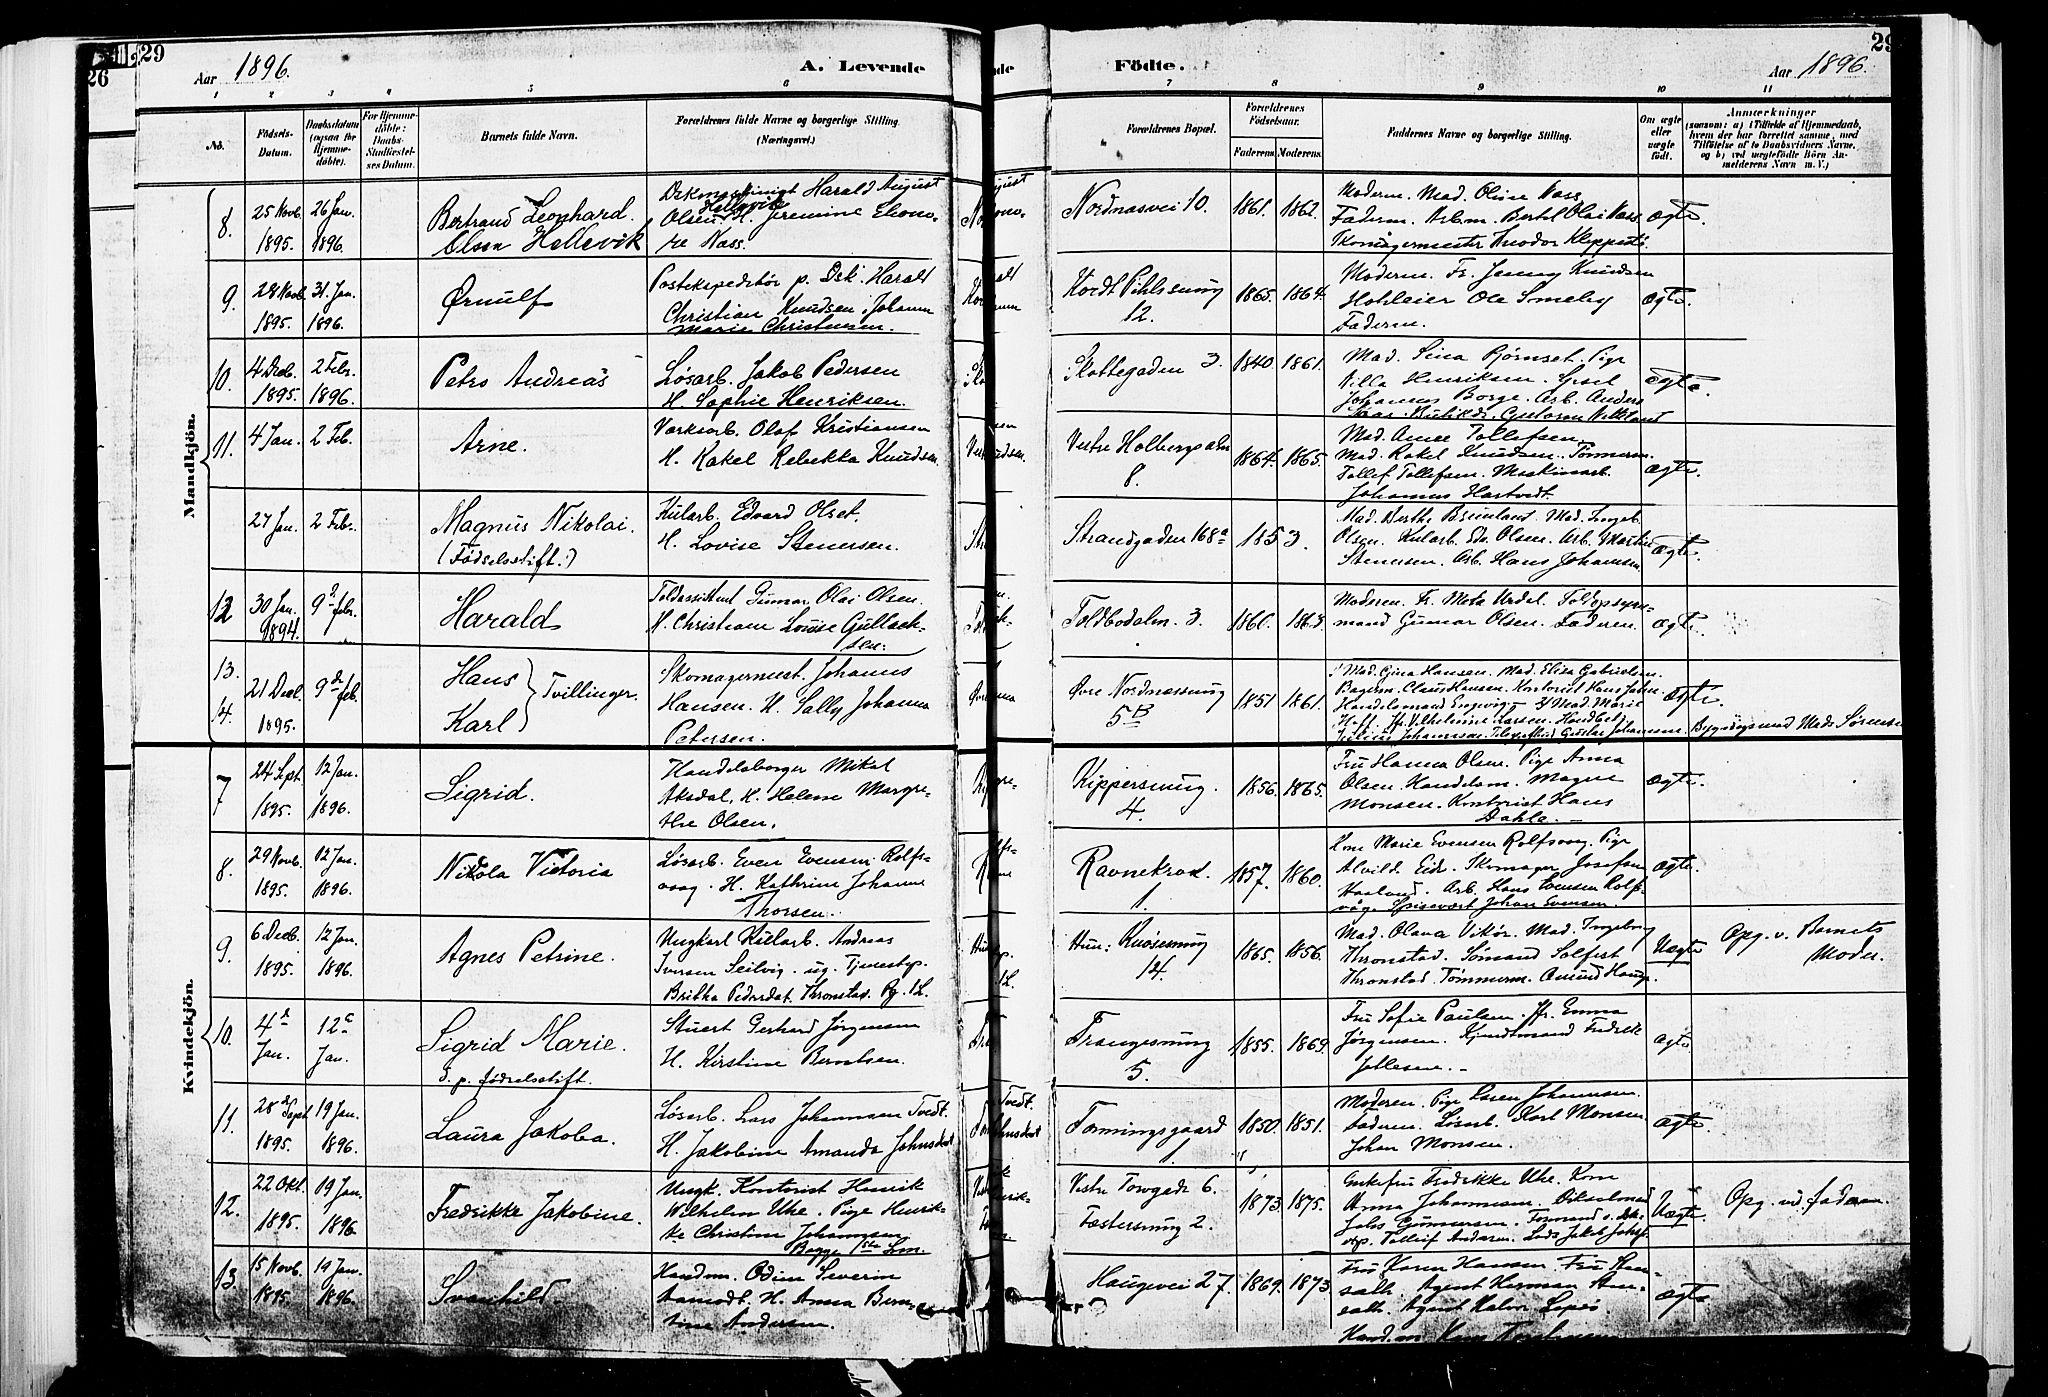 29
26
Aar 1896.
A. Levende
Födte.
29
Aar 1896.
1 2 3 4 5 6 7 8 9 10 11
No.
Födsels-
Datum.
Daabsdatum
(ogsaa for
Hjemme-
döbte).
For Hjemme-
döbte:
Daabs-
Stadfæstel-
ses Datum.
Barnets fulde Navn.
Forældrenes fulde Navne og borgerlige Stilling.
(Næringsvei.)
Forældrenes Bopæl.
Forældrenes
Födselsaar.
Faderens.
Moderens.
Faddernes Navne og borgerlige Stilling.
Om ægte
eller
uægte
födt.
Anmærkninger
(saasom: a) i Tilfælde af Hjemmedaab,
hvem der har forrettet samme, med
Tilföielse af to Daabsvidners Navne,
og b) ved uægtefödte Börn An-
melderens Navn m. V.)
Mandkjön.
8.
25 Novb.
1895.
26 Jan.
1896.
Bertrand Leonhard.
Olsen Hellevik
Harald August
Hellevik
Olsen H. Jeremine Eleono-
re Næss.
Nordnæsvei 10.
1861. 1862.
Moderen. Mad. Oline Næss
Faderen. Arbm. Bertel Olai Næss
Skomagermester Teodor Kleppestö.
ægte.
9.
28 Novb.
1895.
31. Jan.
1896.
Ørnulf
Postekspeditör p. Dsk. Harald
Christian Knudsen. Johanne
Marie Christensen.
Kordt Pihlssmug
12.
1865. 1864.
Moderen. Fr. Jenny Knudsen
Ole Smeby
Faderen.
ægte.
10.
4 Decb.
1895.
2 Febr.
1896.
Petro Andreas
Løsarb. Jakob Pedersen
H. Sophie Henriksen.
Skottegaden 3.
1840. 1861.
Mad. Sina Bjørnset. Pige
Villa Henriksen.
Johannes Borge. Arb. Anders
ægte.
11.
4 Jan.
2 Feb.
Arne.
Værksarb. Olaf Kristiansen
H. Rakel Rebekka Knudsen.
Vestre Holbergs alm
8.
1864. 1865.
Mad. Anne Tollefsen
Mad. Rakel Knudsen. Tømmerm.
Tollef Tollefsen. Maskinarb.
Johannes Hartvedt.
ægte.
27 Jan.
2 Febr.
Magnus Nikolai.
(Fødselsstift.)
Kularb. Edvard Olset.
H. Lovise Stenersen.
Strandgaden 168a
1853.
Mad. Berthe Breinland. Mad. Ingeb.
Olsen. Kularb. Edv. Olsen. Arb. Martin
Stenersen. Arb. Hans Johannsen
ægte.
12
30 Jan.
1894.
9 febr.
Harald
Toldassistent Gunnar Olai Olsen.
H. Christiane Louise Gullack-
sen.
Toldbodalm. 3.
1860. 1863.
Moderen. Fr. Meta Urdal. Toldopsyns-
mand Gunnar Olsen. Faderen.
ægte.
13.
14.
21 Decb.
1895.
9 de feb.
Hans
Karl
Tvillinger.
Skomagermest. Johannes
Hansen. H. Sally Johanna
Petersen.
Øvre Nordnæssmug
5 B
1851 1861.
Mad. Gina Hansen. Mad. Elisa Gabrielsen.
Bagerm. Claus Hansen. Kontorist Hans Johan
Handelsmand Engevig. Mad. Marie
Vilhelmine Larsen.
Johannesen. Gustav Johannsen.
ægte.
Bygningssnd Mads Sørensen
Kvindekjön.
7
24 Sept.
1895.
12 Jan.
1896.
Sigrid.
Handelsborger Mikal
Aksdal, H. Helene Margre-
the Olsen.
Kippersmug.
4.
1856. 1865.
Fru Hanna Olsen. Pige Anna
Olsen. Handelsm. Magne
Monsen. Kontorist Hans
Dahle.
ægte.
8.
29 Novb.
1895.
12 Jan.
1896.
Nikola Victoria
Løsarb. Even Evensen Rolfs-
vaag. H. Kathrine Johanne
Thorsen.
Ravnekrod.
1.
1857. 1860.
Kone Marie Evensen Rolfsvaag. Pige
Alvild Eide. Skomager Josefsen
Haaland. Arb. Hans Evensen Rolfs-
våg. Spisevært Johan Evensen.
ægte.
9.
6 Decb.
1895.
12 Jan.
1896.
Agnes Petrine.
Ungkarl Kularb. Andreas
Iversen Seilvig. ug. Tjenestep.
Britha Pedersdat. Thronstad. Bg. 1 L.
Hun: Knøsesmug
14.
1865. 1856.
Mad. Olava Vikör. Mad. Ingeborg
Thronstad. Sömand Salfest
Thronstad. Tømmerm. Amund Hauge.
Uægte
Opg. v. Barnets
Moder.
10.
4 de
Jan.
12 te
Jan.
Sigrid Marie.
d. p. fødselsstift.
Stuert Gerhard Jørgensen
H. Kirstine Berntsen.
Trangesmug
5.
1855. 1869.
Fru Sofie Paulsen. Fr. Emma
Jørgensen. Kjendtmand Fredrik
Jellesen.
ægte
11.
28 de Sept
1895.
19 Jan.
1896.
Laura Jakoba.
Løsarb. Lars Johannesen Tvedt.
H. Jakobine Amanda Johnsdat
Formingsgaard
1.
1850. 1851.
Moderen. Pige Laren Johannsen.
Faderen. Løsarb. Karl Monsen
Johan Monsen.
ægte.
12.
22 Okt.
1895.
19 Jan.
1896
Fredrikke Jakobine.
Ungk. Kontorist Henrik
Wilhelm Uhe. Pige Henrik-
ke Christine Johannsen
Begge 1ste Lm.
Vestre Torvgade 6.
Fostersmug 2.
1873. 1875.
Enkefru Fredrikke Uhe. Kone
Anna Johannesen.
Jahs Gunnersen. Formand v.
Tollef Andersen.
Uægte.
Opg. ved faderen.
13.
15 Novb.
1895.
19 Jan.
1896.
Svanhild.
Handm. Odin Severin
Aamodt. H. Anna Bern-
tine Andersen.
Haugevei 27.
1869. 1873
Fru Karen Hansen. Fru
Agent Herman
Agent Halvor
Handm.
ægte